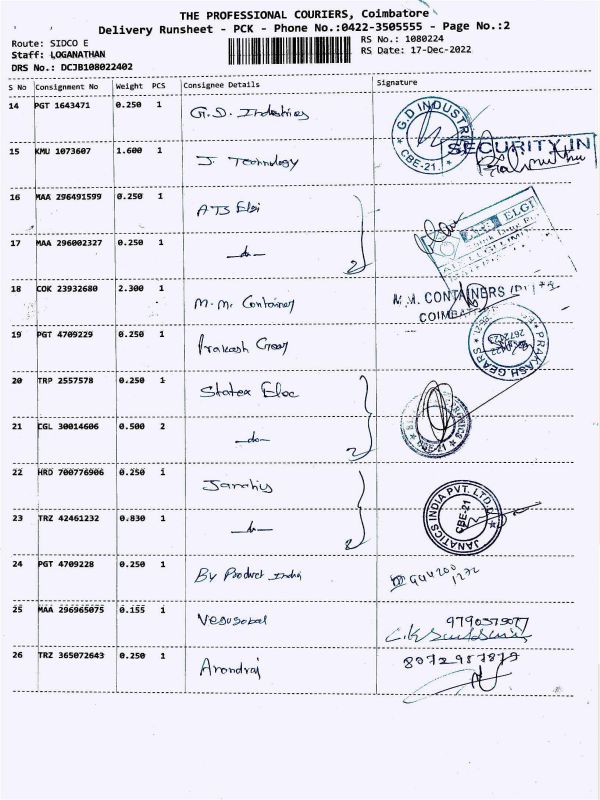 THE PROFESSIONAL COURIERS, Coimbatore
Delivery Runsheet - PCK - Phone No.:0422-3505555 - Page No.:2
Route: SIDCO E
RS No.: 1080224
Staff: LOGANATHAN
RS Date: 17-Dec-2022
DRS No.: DCJB108022402
S No Consignment No Weight PCS Consignee Details Signature
14 PGT 1643471 0.250 1 G.D. Industries
G.D INDUSTR
CBE-21.
SECURITY IN
15 KMU 1073607 1.600 1 J Technology
16 MAA 296491599 0.250 1 ATS Elgi
ELGI
17 MAA 296002327 0.250 1 -do- 2
18 COK 23932680 2.300 1 M.M. Container
M.M. CONTAINERS
COIMBAT
19 PGT 4709229 0.250 1 Prakash Gear
PRAKASH GEARS
20 TRP 2557578 0.250 1 Statex Elec
21 CGL 30014606 0.500 2 -do- 2
CBE-21
22 HRD 700776906 0.250 1
JANATICS INDIA PVT. LTD.
CBE-21
23 TRZ 42461232 0.830 1 -do- 2
24 PGT 4709228 0.250 1 By Product India
25 MAA 296965075 0.155 1
26 TRZ 365072643 0.250 1
8072987879